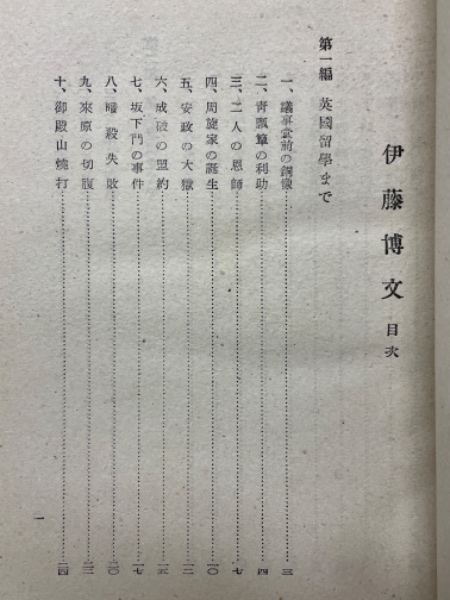 伊藤博文 目次
第一編 英國留學まで
一、議事堂前の銅像……三
二、靑瓢簞の利助……四
三、二人の恩師……七
四、周旋家の誕生……一〇
五、安政の大獄……一二
六、成破の盟約……一五
七、坂下門の事件……一七
八、暗殺失敗……二〇
九、來原の切腹……二二
十、御殿山燒打……二四
一